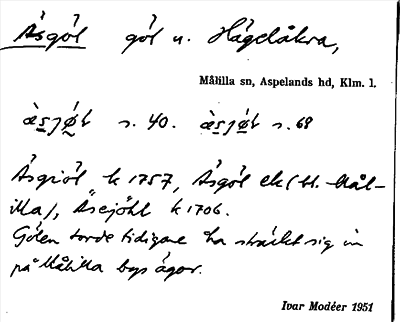 Åsgöl göl u. Hägelåkra,
Målilla sn, Aspelands hd, Klm. l.
s. 40. s. 68
Åsgiöl k 1757, Åsgöl ek (bl. Mål-
illa), Åsejöhl k 1706.
Gölen torde tidigare ha sträckt sig in
på Målilla bys ägor.
Ivar Modéer 1951